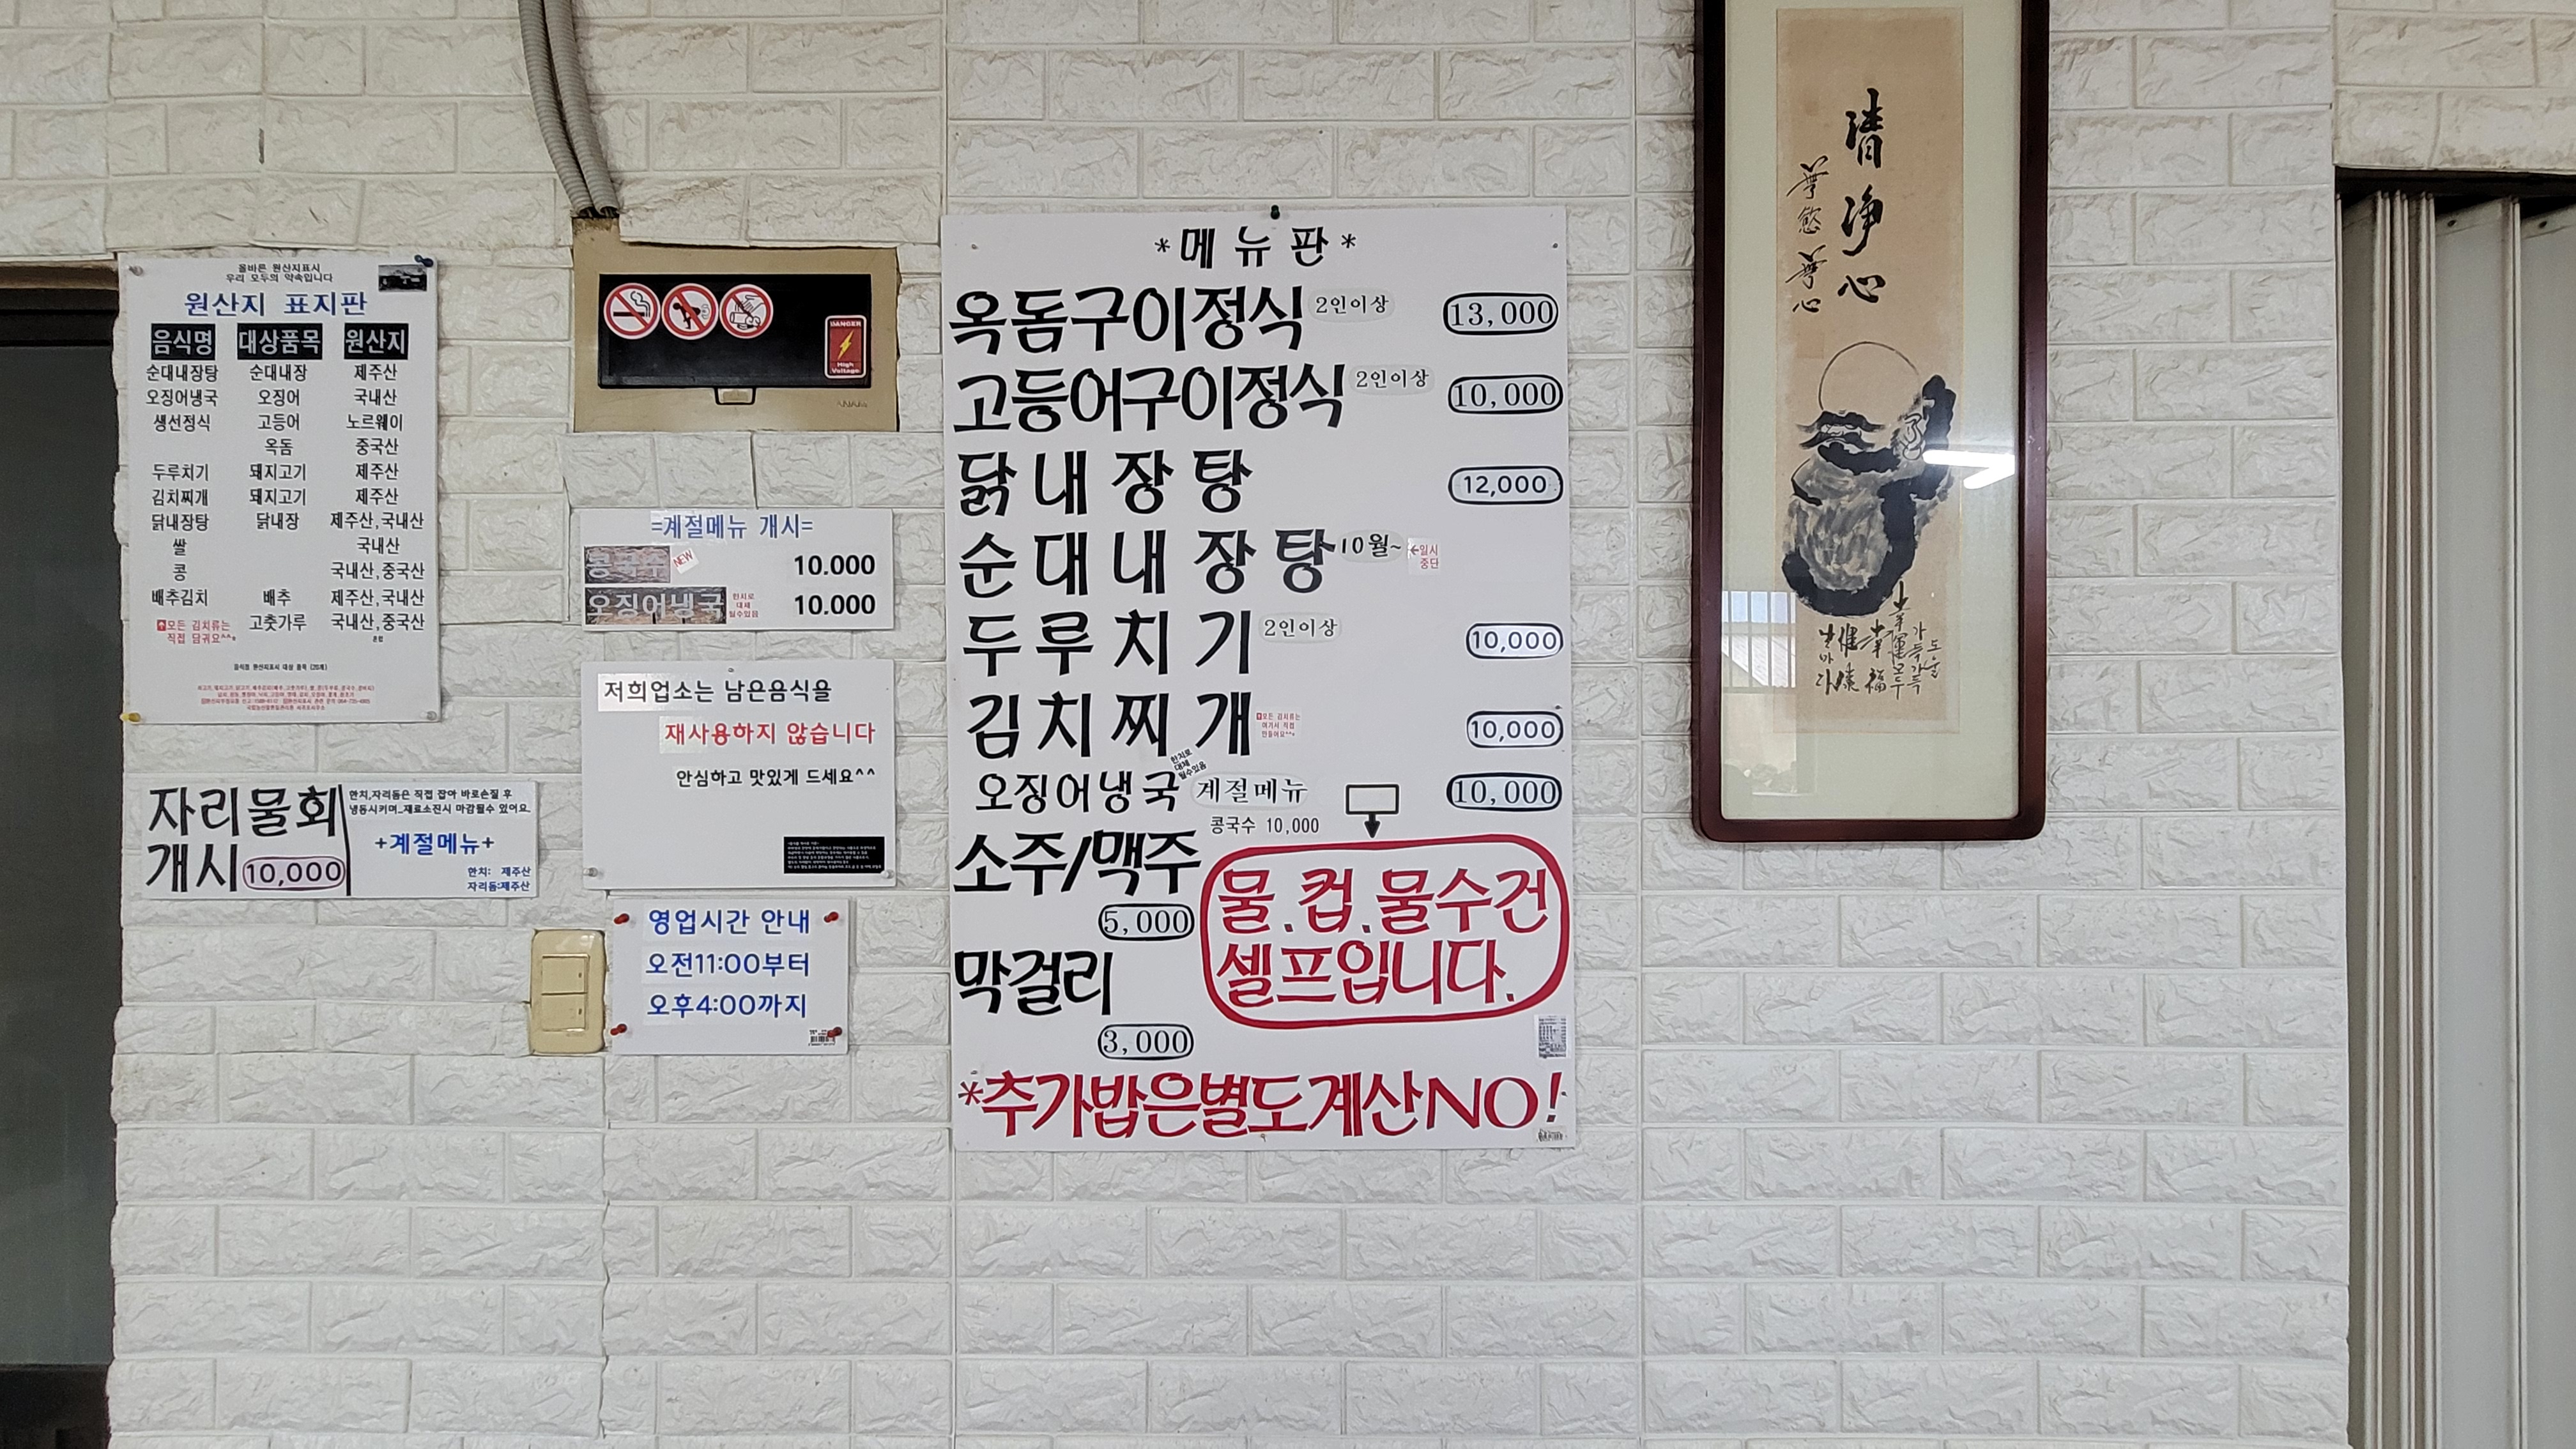 올바른 원산지표시
우리 모두의 약속입니다
원산지 표지판
음식명 대상품목 원산지
순대내장탕 순대내장 제주산
오징어냉국 오징어 국내산
생선정식 고등어 노르웨이
옥돔 중국산
두루치기 돼지고기 제주산
김치찌개 돼지고기 제주산
닭내장탕 닭내장 제주산,국내산
쌀 국내산
콩 국내산,중국산
배추김치 배추 제주산,국내산
고춧가루 국내산,중국산
모든 김치류는
직접 담궈요^^*
혼합
음식점 원산지표시 대상 품목 (20개)
자리물회
개시 10,000
한치,자리돔은 직접 잡아 바로손질 후
냉동시키며..재료소진시 마감될수 있어요.
+계절메뉴+
한치: 제주산
자리돔:제주산
DANGER
High
Voltage
=계절메뉴 개시=
콩국수 NEW 10.000
오징어냉국 한치로
대체
될수있음 10.000
저희업소는 남은음식을
재사용하지 않습니다
안심하고 맛있게 드세요^^
영업시간 안내
오전11:00부터
오후4:00까지
*메뉴판*
옥돔구이정식 2인이상 13,000
고등어구이정식 2인이상 10,000
닭내장탕 12,000
순대내장탕 10월~ ←일시
중단
두루치기 2인이상 10,000
김치찌개 10,000
모든 김치류는
여기서 직접
만들어요^^*
한치로
대체
될수있음
오징어냉국 계절메뉴 10,000
콩국수 10,000
소주/맥주
5,000
막걸리
3,000
물.컵.물수건
셀프입니다.
*추가밥은별도계산NO!
清净心
無慾無心